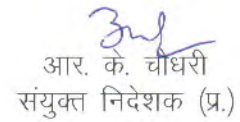 आर. के. चौधरी
संयुक्त निदेशक (प्र.)